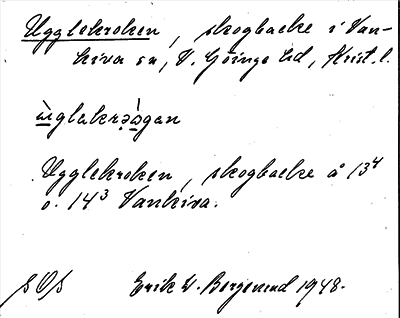 Ugglekroken, skogbacke i Van-
kiva sn, V. Göinge hd, Krist. l.
ùglakrəɔ̀gan
Ugglekroken, skogbacke å 13⁴
o. 14³ Vankiva.
SOS Erik W. Bergerud 1948.